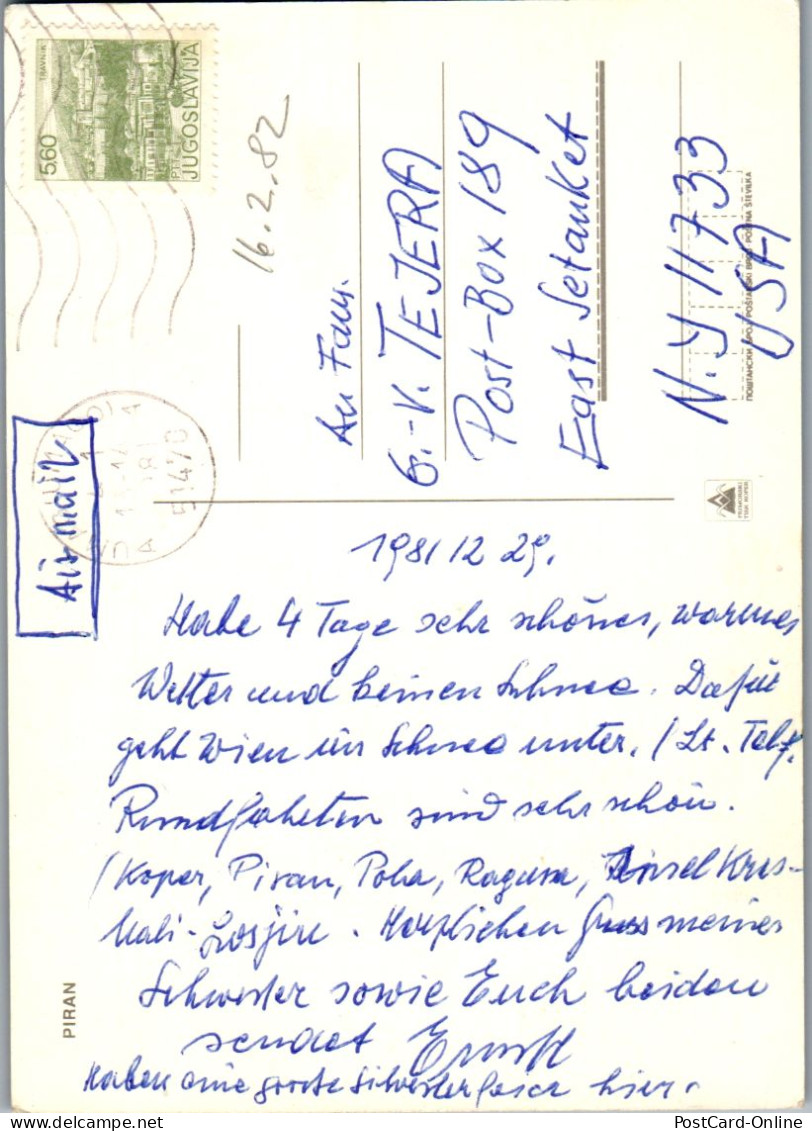 TRAVNIK
5.60
JUGOSLAVIJA
PTT
51470
Airmail
16.2.82
An Fam.
G.-V. TEJERA
Post-Box 189
East Setauket
N.Y 11733
USA
ПОШТАНСКИ БРОЈ POŠTANSKI BROJ POŠTNA ŠTEVILKA
1981 12 29.
Habe 4 Tage sehr schönes, warmes
Wetter und keinen Schnee. Dafür
geht Wien im Schnee unter. /Lt. Telf.
Rundfahrten sind sehr schön.
/Koper, Piran, Pola, Ragusa, Insel Kres-
Mali-Losjin. Herzlichen Gruss meiner
Schwester sowie Euch beiden
sendet Ernst
Haben eine grosse Silvesterfeier hier.
PIRAN
PostCard-Online